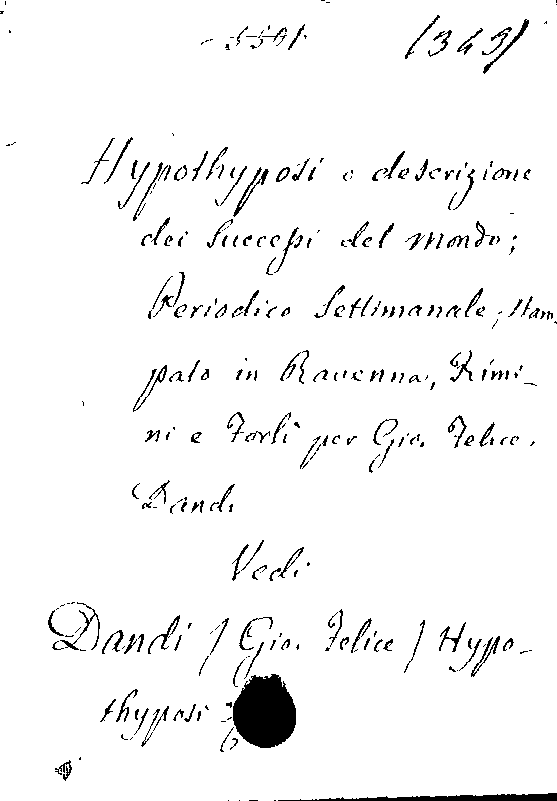 5501 (343)
Hypothyposi o descrizione
dei successi del mondo;
Periodico Settimanale; stam-
pato in Ravenna, Rimi-
ni e Forlì per Gio. Felice
Dandi
Vedi
Dandi (Gio. Felice) Hypo-
thyposi